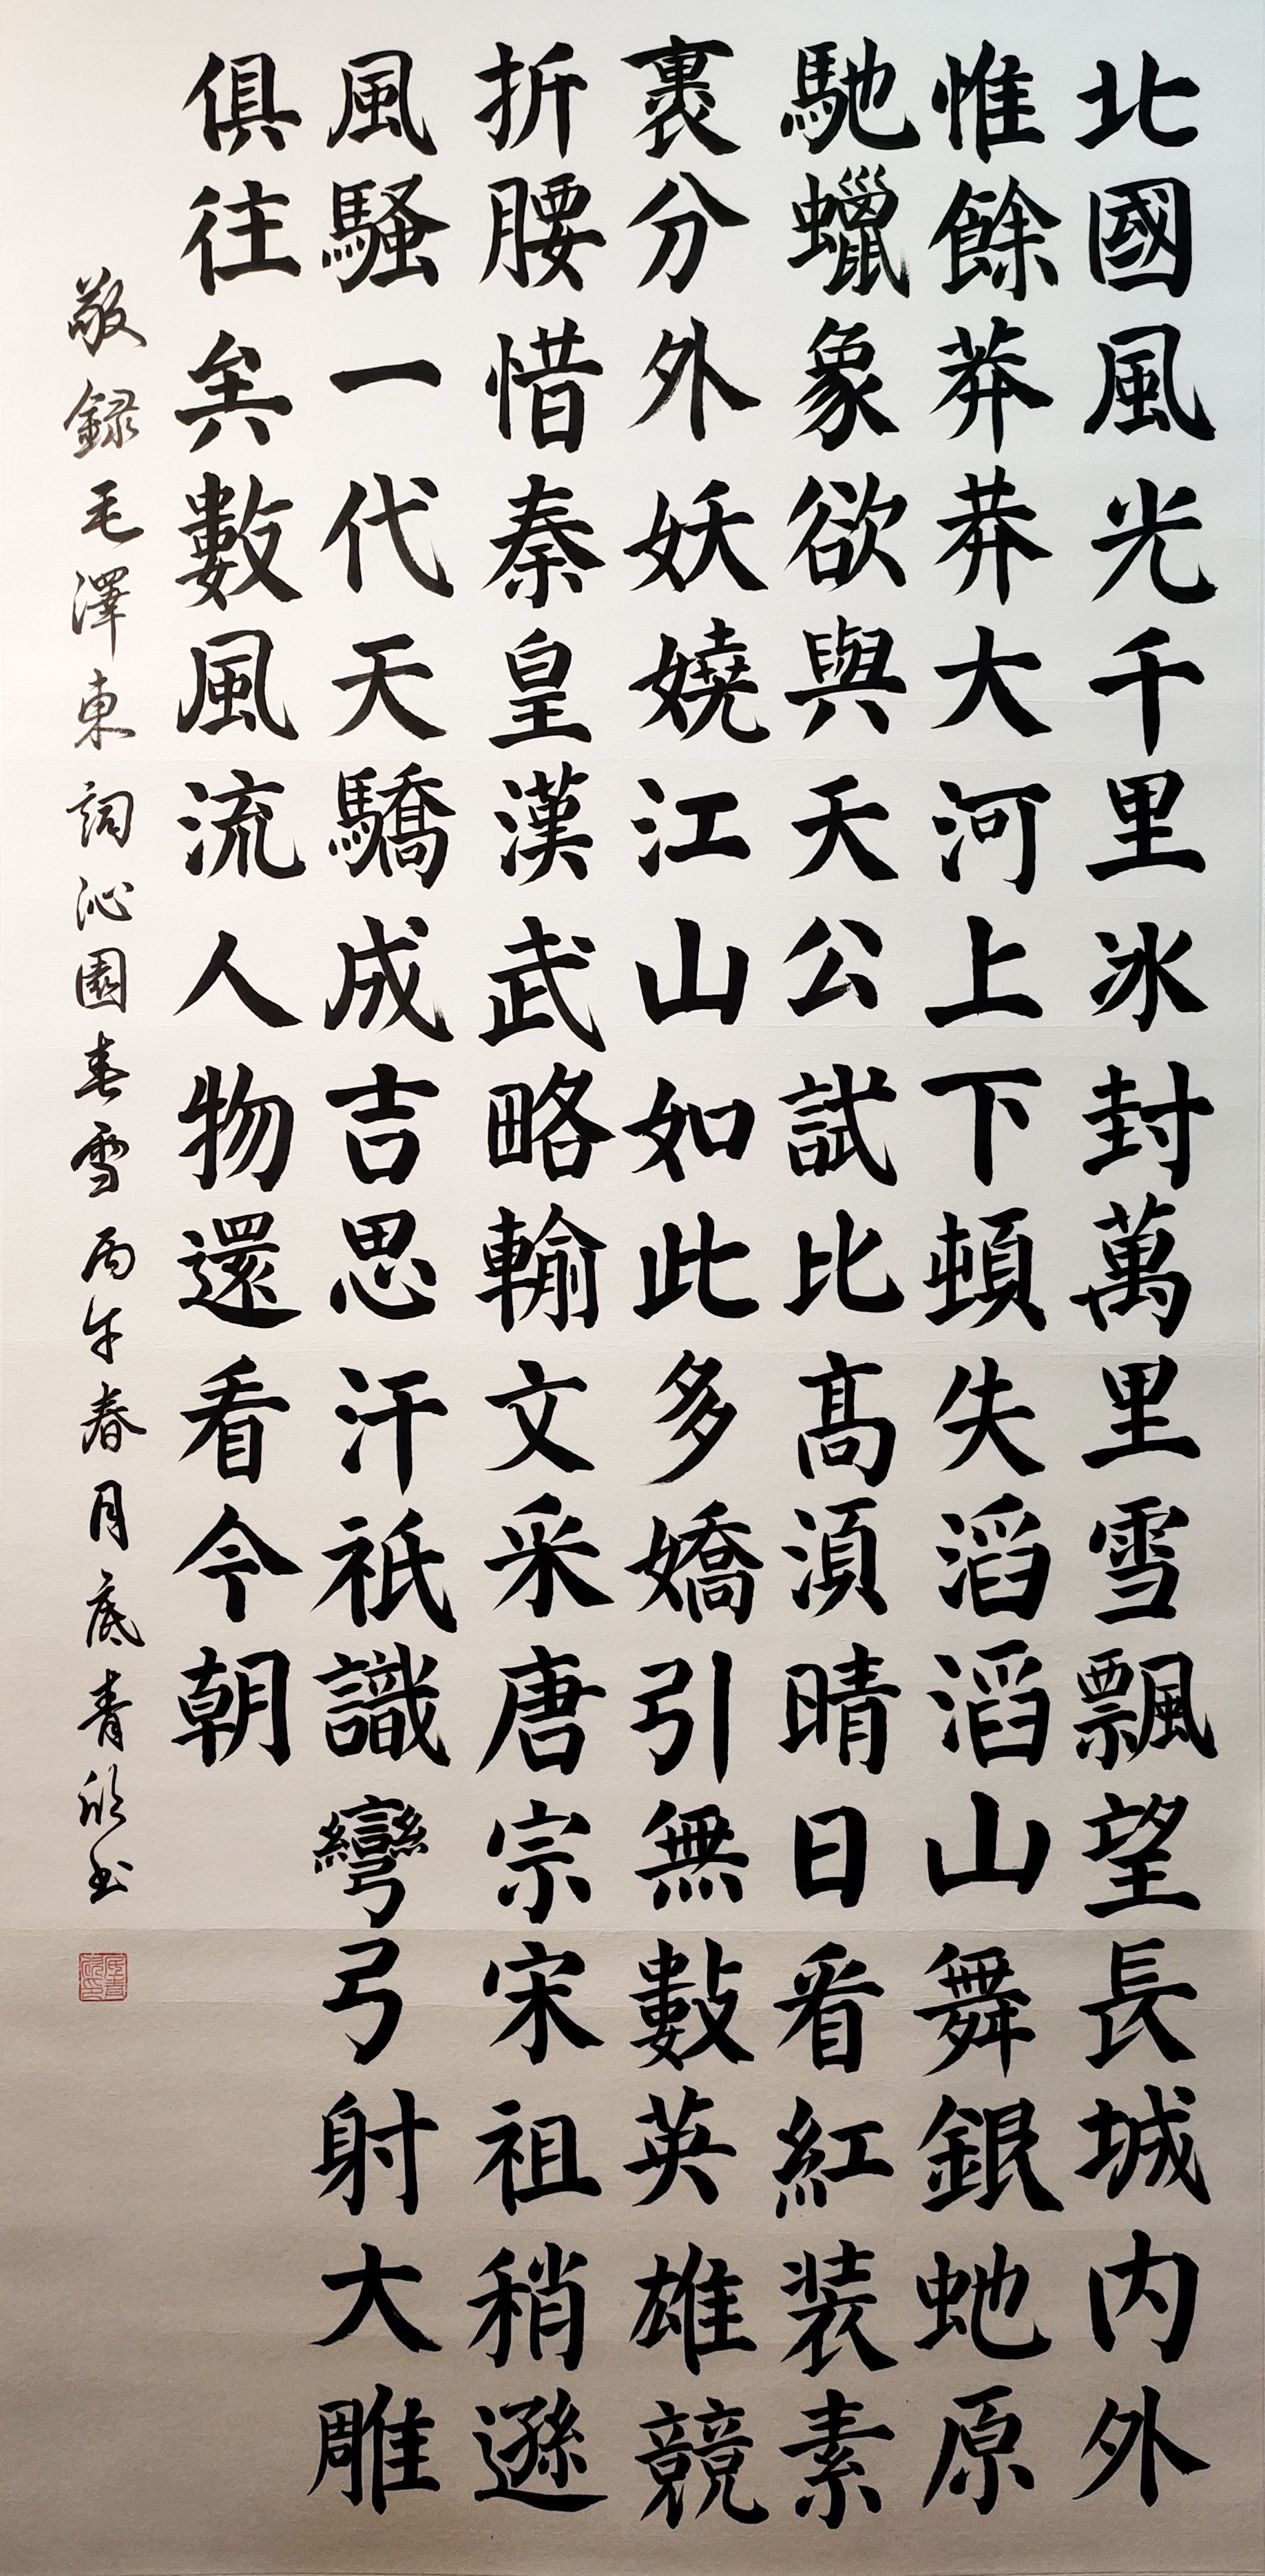 北國風光千里冰封萬里雪飄望長城内外
惟餘莽莽大河上下頓失滔滔山舞銀虵原
馳蠟象欲與天公試比髙湏晴日看紅装素
裹分外妖嬈江山如此多嬌引無數英雄競
折腰惜秦皇漢武略輸文采唐宗宋祖稍遜
風騷一代天驕成吉思汗祇識彎弓射大雕
俱往矣數風流人物還看今朝
敬録毛澤東詞沁園春雪丙午春月底青欣书